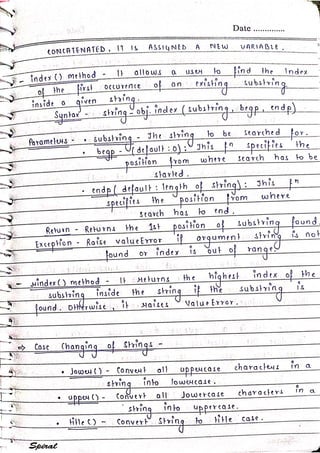 Date ..............
CONCATENATED, IT IS ASSIGNED A NEW VARIABLE.
- index() method - It allows a user to find the index
of the first occurence of an existing substring
inside a given string.
Syntax - string_obj. index (substring, begp, endp)
Parameters - • substring - The string to be searched for.
• begp - (default: 0): This fn specifies the
position from where search has to be
started.
• endp (default: length of string): This fn
specifies the position from where
search has to end.
Return - Returns the 1st position of substring found.
Exception - Raise valueError if argument string is not
found or index is out of range.
- rindex() method - It returns the highest index of the
substring inside the string if the substring is
found. Otherwise, it raises ValueError.
⇒ Case Changing of Strings -
• lower() - Convert all uppercase characters in a
string into lowercase.
• upper() - Convert all lowercase characters in a
string into uppercase.
• title() - Convert String to title case.
Spiral